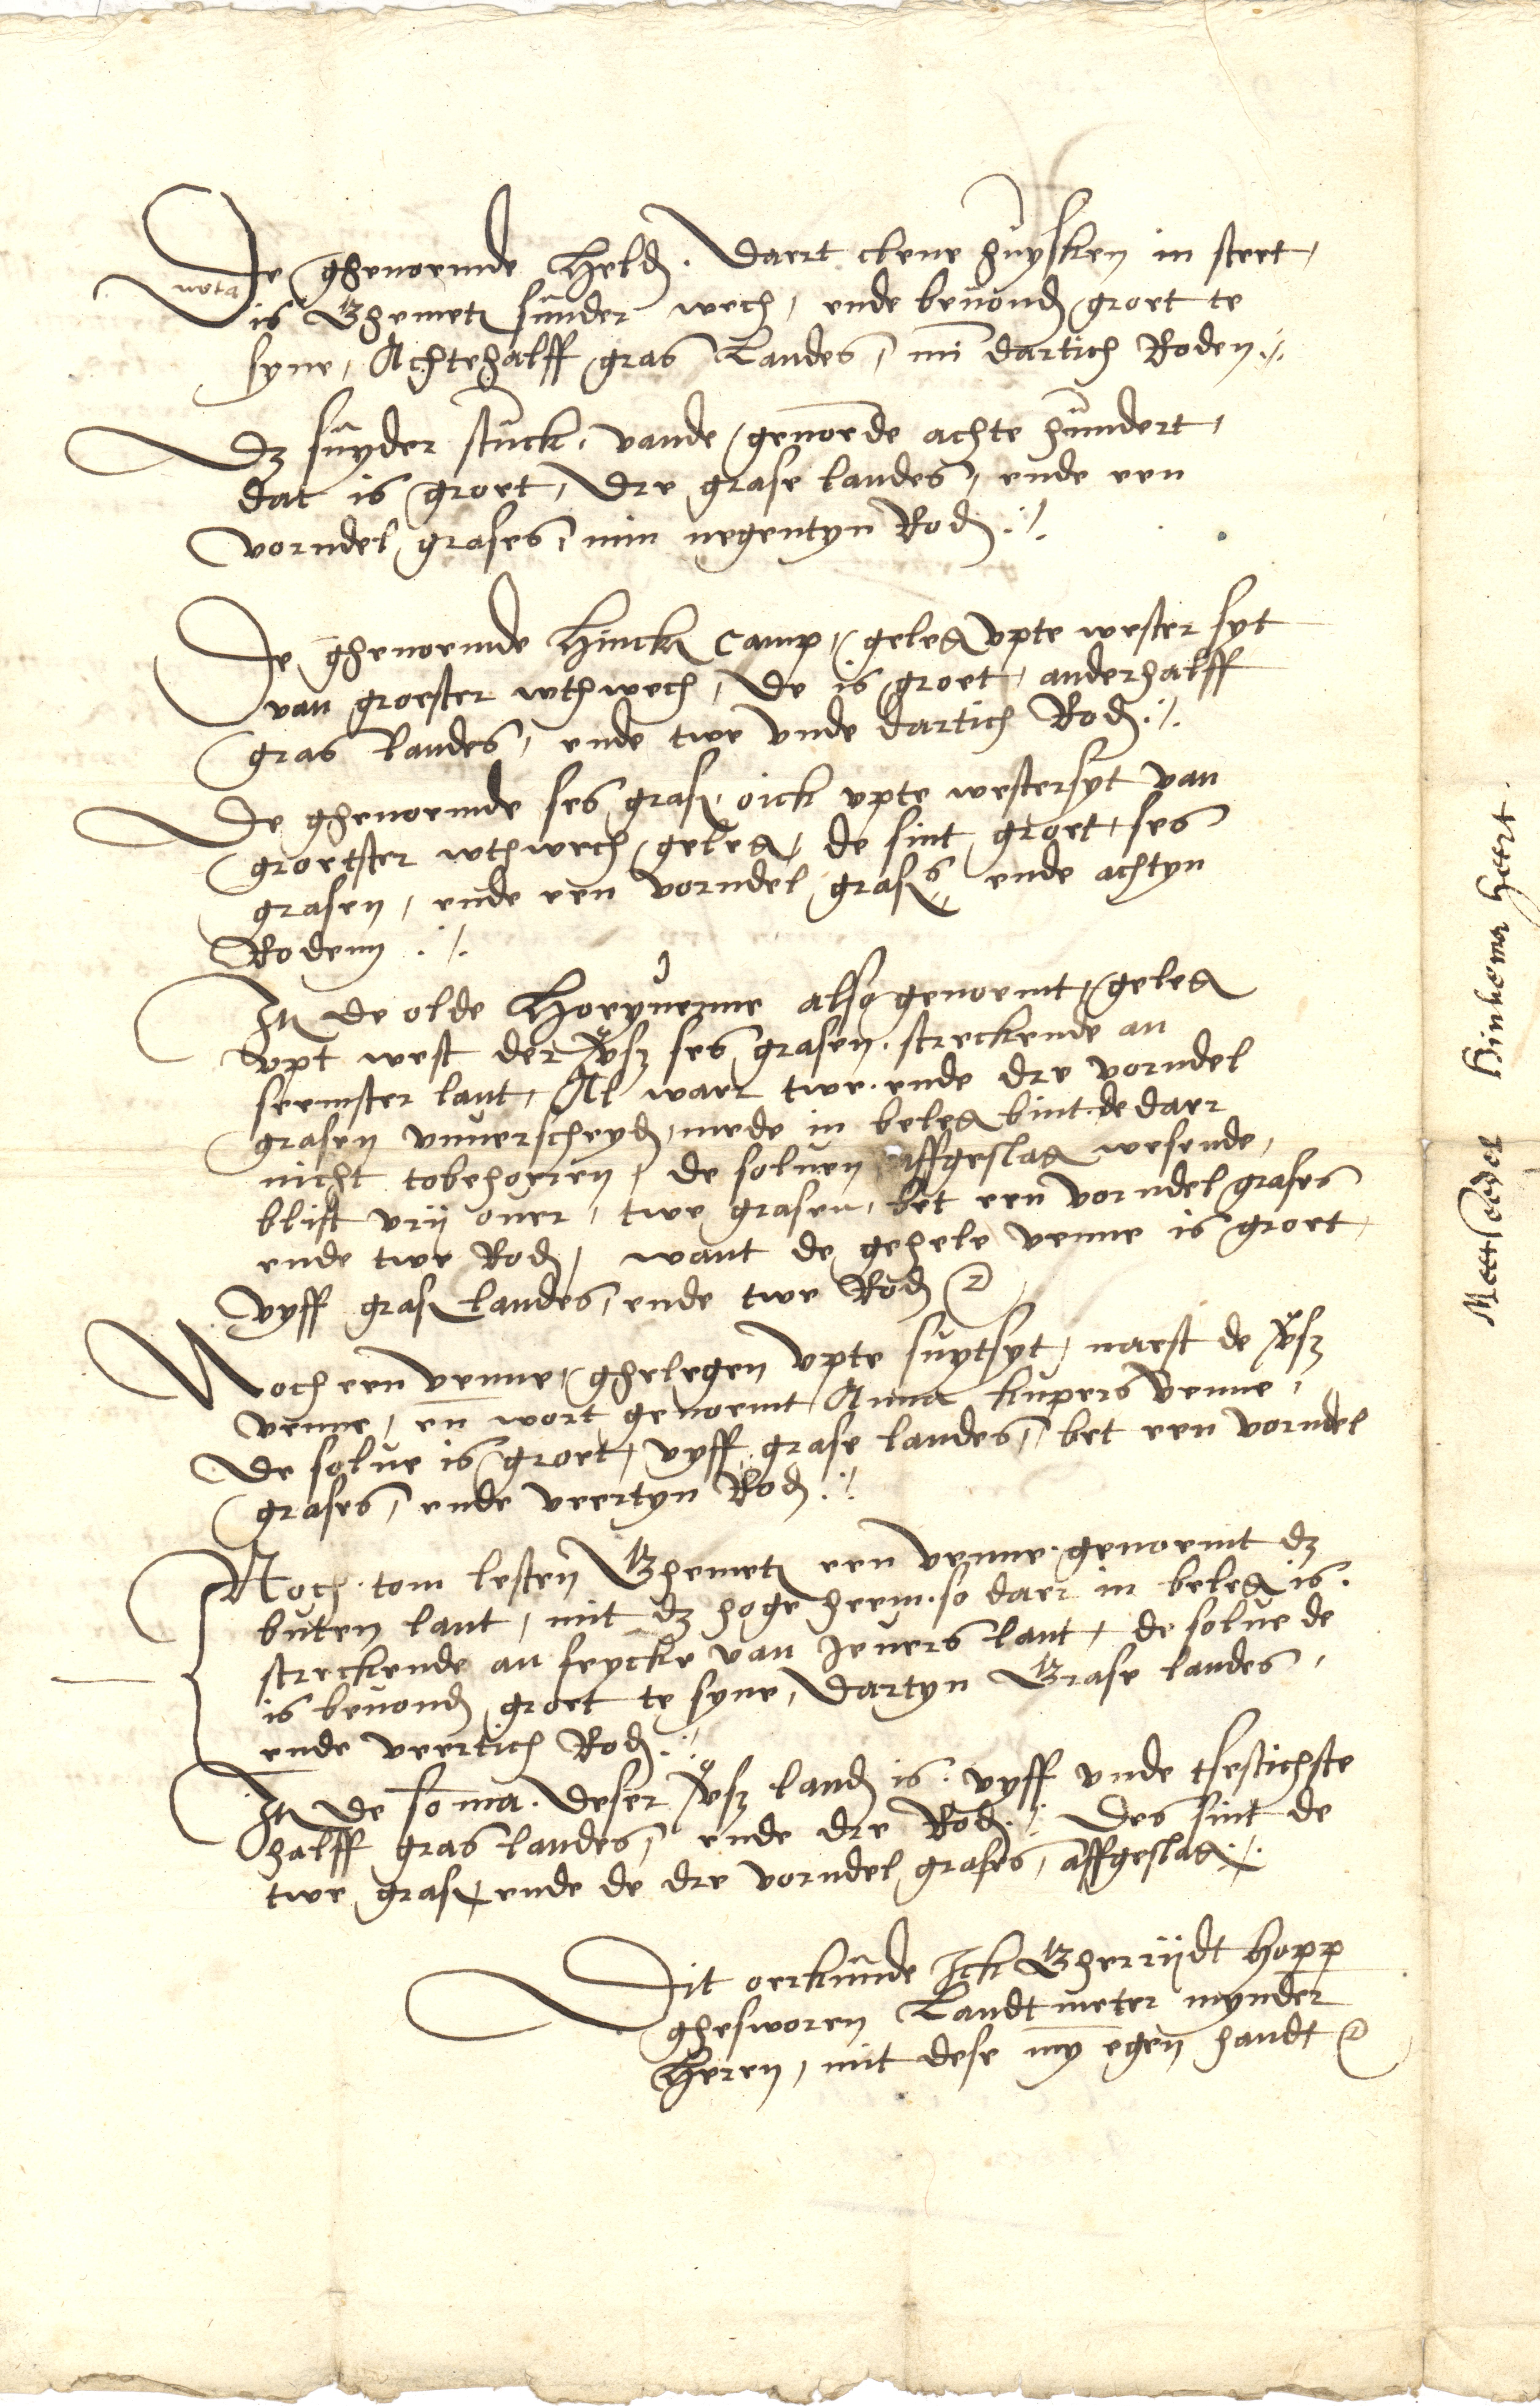 De ghenoemde Held. Daert clene huysken in steet,
nota
is Ghemet sunder wech, ende beuond groet te
syne, Achtehalff gras Landes, min dartich Roden
Dz suyder stuck, vande genoede achte hundert,
dat is groet, Dre grase landes, ende een
vorndel grases, min negentyn Rod
De ghenoemde Hinck camp, geleg vpte wester syt
van groester wthwech, De is groet, anderhalff
gras landes, ende twe vnde dartich Rod
De ghenoemde ses gras, oick vpte westersyt van
groetster wthwech geleg, de sint groet, ses
grasen, ende een vorndel gras, ende achtyn
Rodenn
Itt de olde Hoeyuenne also genoemt, geleg
vpt west der ses grasen. streckende an
seemster lant, Al waer twe. ende dre vorndel
grasen vnuerscheyd, mede in beleg bint. de daer
nicht tobehoeren, de soluen affgeslag wesende,
blift vrij ouer, twe grasen, bet een vorndel grases
ende twe Rod, want de gehele venne is groet,
vyff gras landes, ende twe Rod
Noch een venne, ghelegen vpte suytsyt, naest de
venne, en wort genoemt Anna kupers venne,
De solue is groet, vyff grase landes, bet een vorndel
grases, ende veertyn Rod
Noch. tom lesten Ghemet een venne. genoemt dz
buten lant, mit dz hoge heem. so daer in beleg is.
streckende an feycke van Jeuers lant, de solue de
is beuond groet te syne, Dartyn Grase landes,
ende veertich Rod
Itt de soma. deser land is. vyff vnde tsestichste
halff gras landes, ende dre Rod. Des sint de
twe gras, ende de dre vorndel grases, affgeslag
Dit oerkunde Ick Gherrijdt Hopp
ghesworen Landtmeter mynder
Heren, mit dese my egen handt
Meetseedel Hinkema Heert.